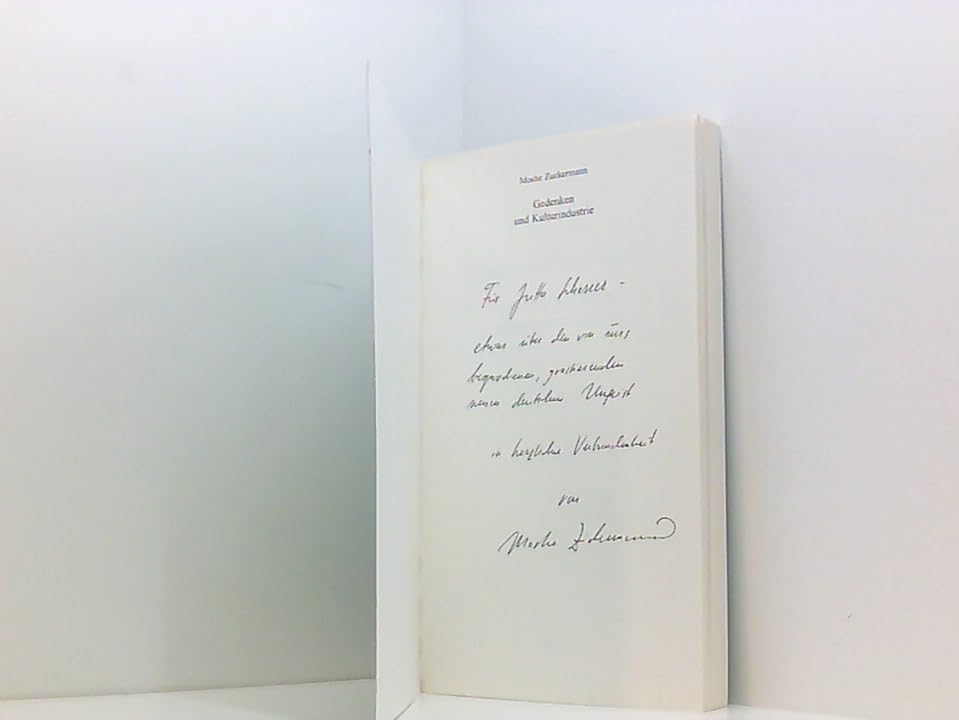 Moshe Zuckermann
Gedenken
und Kulturindustrie
Für Jutta
etwas über den von uns
neuen deutschen Ungeist
in herzlicher Verbundenheit
von
Moshe Zuckermann